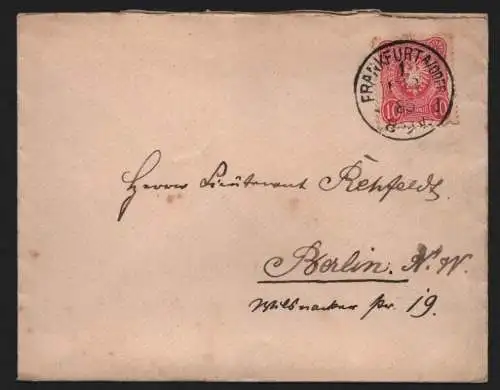 FRANKFURT A/ODER
1
10 10
Herrn Lieutenant Rehfeldt
Berlin. N. W.
Wilsnacker Str. 19.